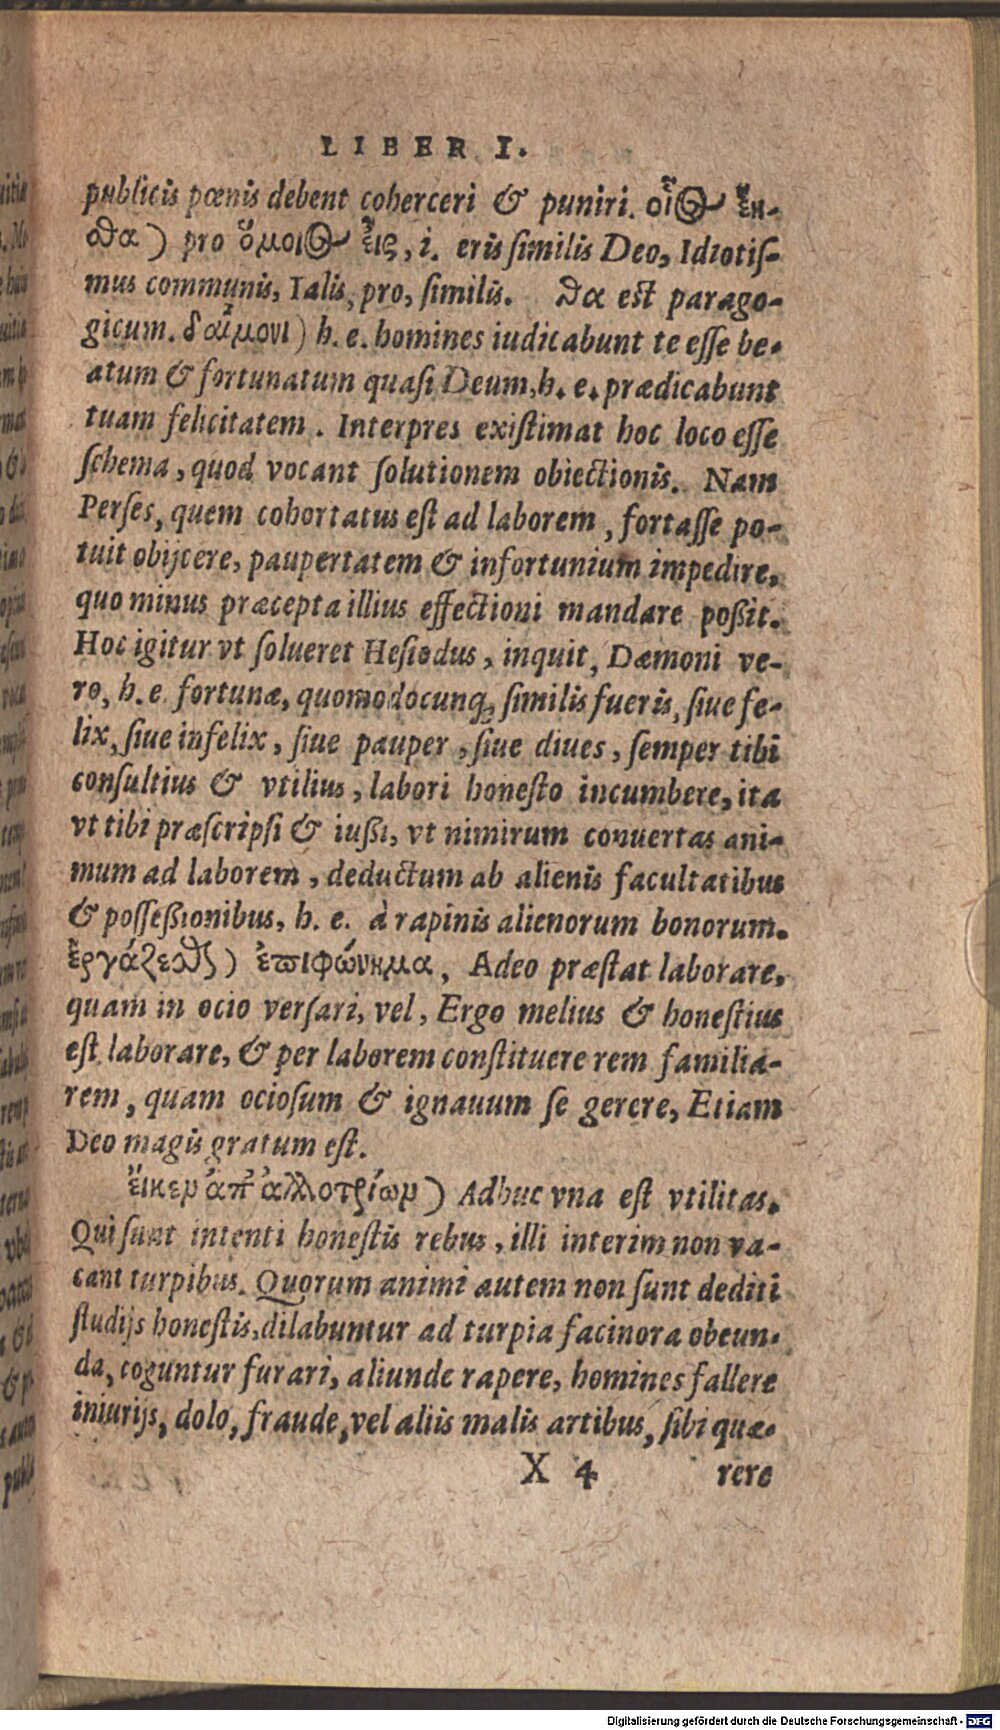 LIBER I.
publicis pœnis debent coherceri & puniri. οἷος ἔη-
σθα) pro ὅμοιος εἶς, i. eris similis Deo, Idiotis-
mus communis, Talis, pro, similis. θα est parago-
gicum. δαίμονι) h. e. homines iudicabunt te esse be-
atum & fortunatum quasi Deum, h. e. prædicabunt
tuam felicitatem. Interpres existimat hoc loco esse
schema, quod vocant solutionem obiectionis. Nam
Perses, quem cohortatus est ad laborem, fortasse po-
tuit obijcere, paupertatem & infortunium impedire,
quo minus præcepta illius effectioni mandare poßit.
Hoc igitur vt solueret Hesiodus, inquit, Dæmoni ve-
ro, h. e. fortunæ, quomodocunq; similis fueris, siue fe-
lix, siue infelix, siue pauper, siue diues, semper tibi
consultius & vtilius, labori honesto incumbere, ita
vt tibi præscripsi & iußi, vt nimirum conuertas ani-
mum ad laborem, deductum ab alienis facultatibus
& posseßionibus, h. e. à rapinis alienorum bonorum.
ἐργάζεσθαι) ἐπιφώνημα, Adeo præstat laborare,
quam in ocio versari, vel, Ergo melius & honestius
est laborare, & per laborem constituere rem familia-
rem, quam ociosum & ignauum se gerere, Etiam
Deo magis gratum est.
εἴκεν ἀπ' ἀλλοτρίων) Adhuc vna est vtilitas.
Qui sunt intenti honestis rebus, illi interim non va-
cant turpibus. Quorum animi autem non sunt dediti
studijs honestis, dilabuntur ad turpia facinora obeun-
da, coguntur furari, aliunde rapere, homines fallere
iniurijs, dolo, fraude, vel aliis malis artibus, sibi quæ-
X 4 rere
Digitalisierung gefördert durch die Deutsche Forschungsgemeinschaft - DFG